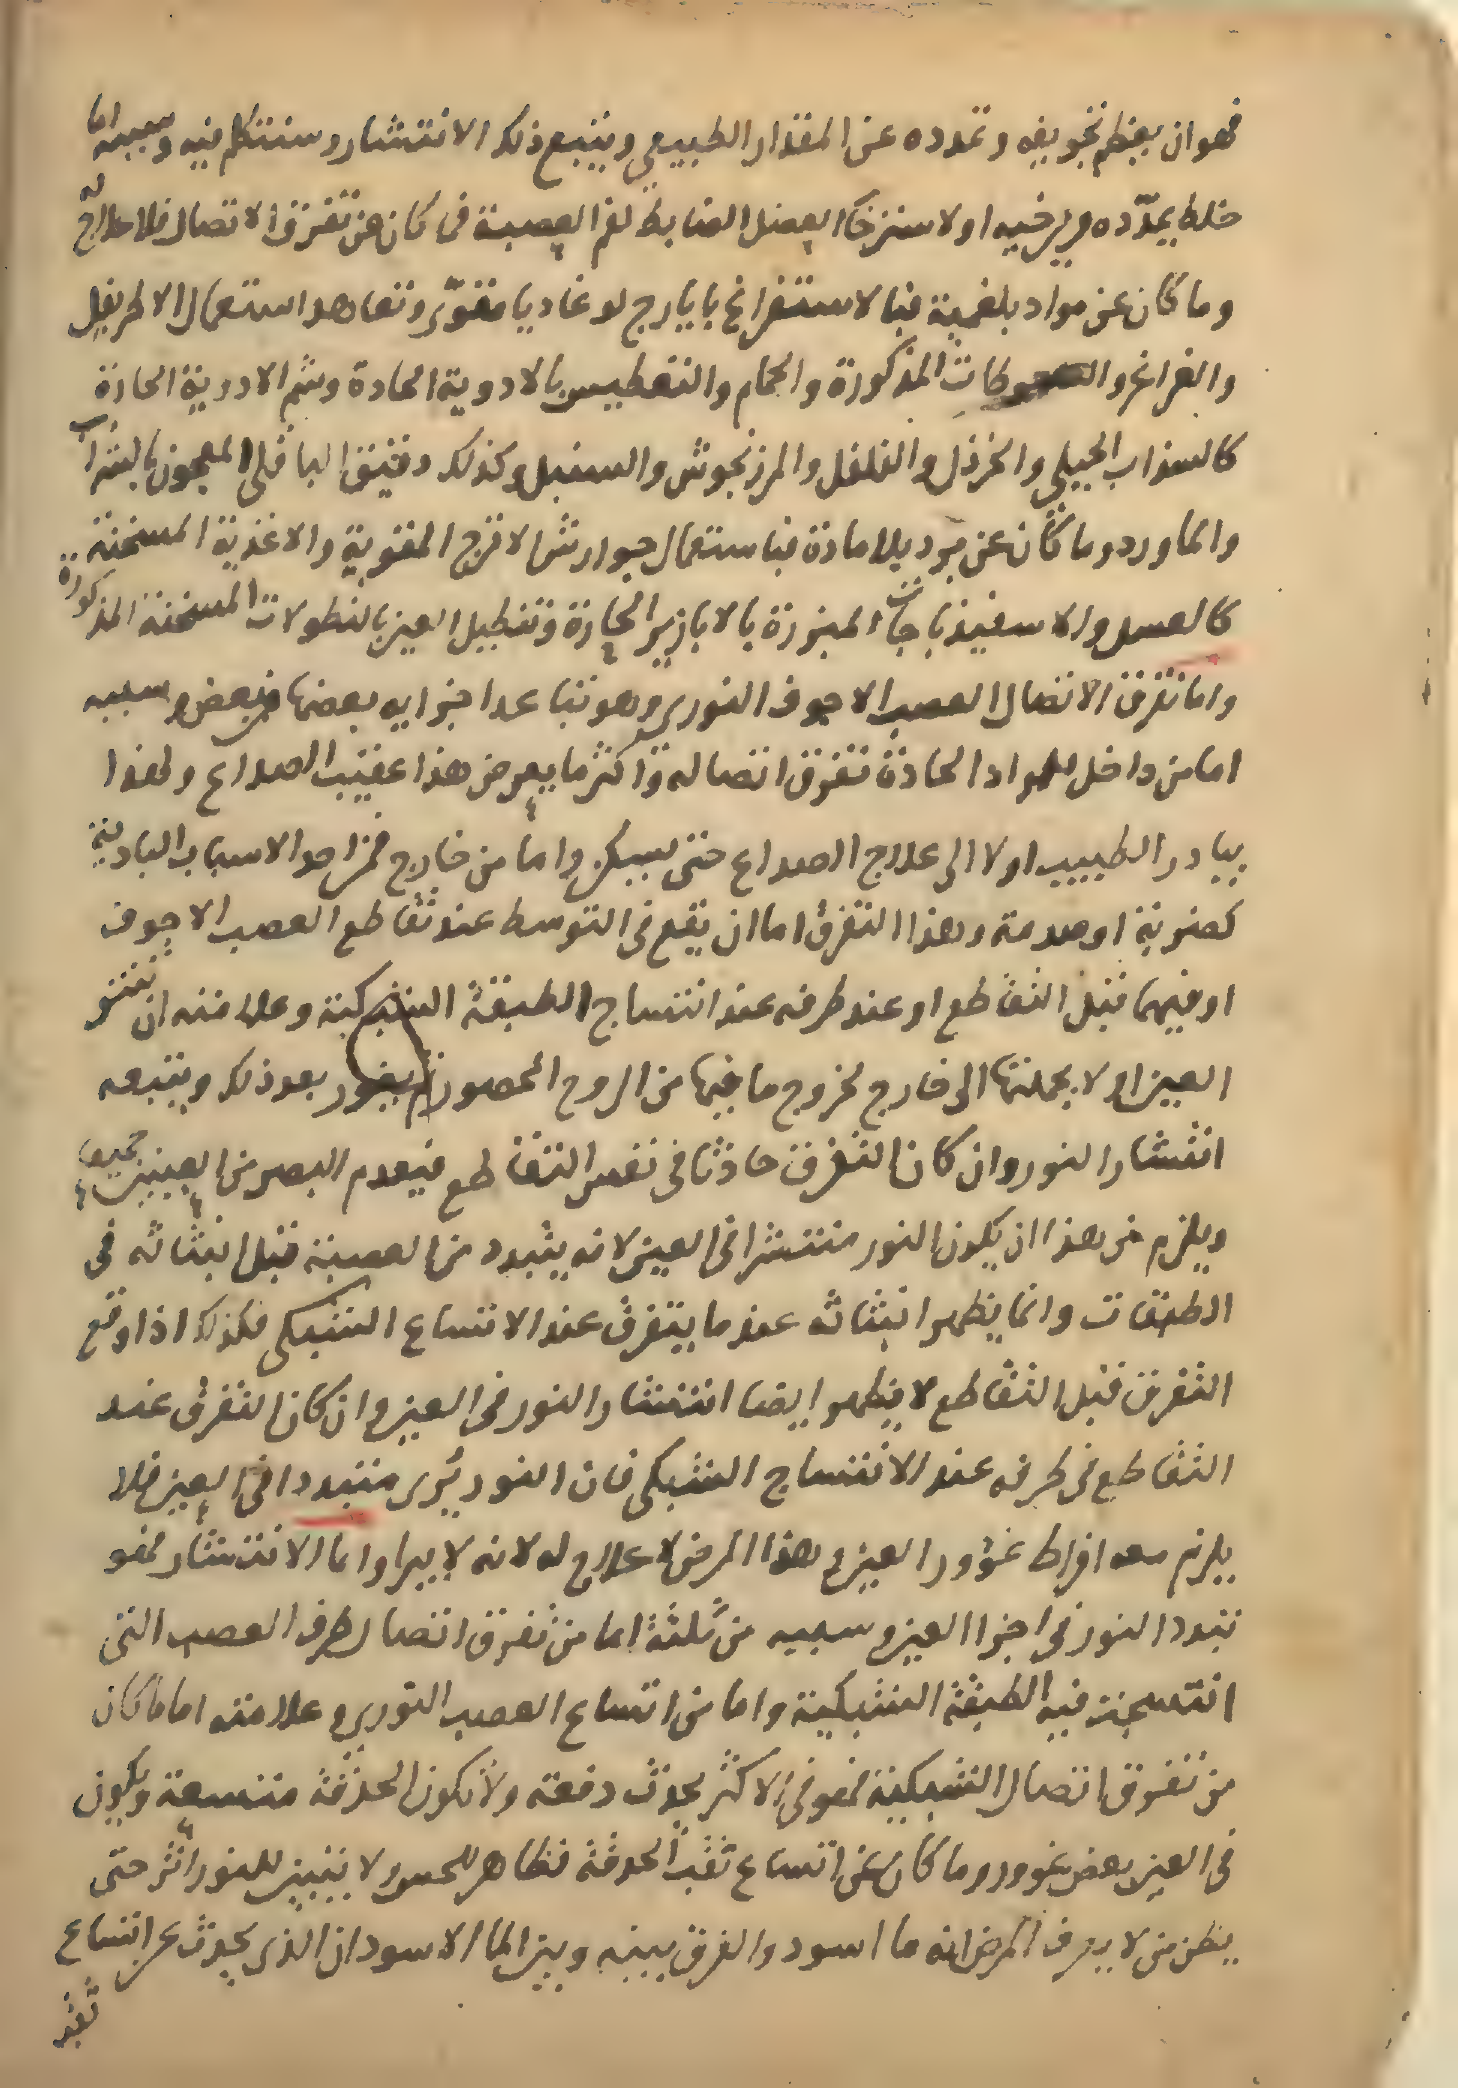 فهو ان يعظم تجويفه وتمدده عن المقدار الطبيعي ويتبع ذلك الانتشار وسنتكلم فيه وسببه اما
خلط يمدّده ويرخيه او لاسترخاء العضل الضابط لفم العصبة فى كان عن تفرق الاتصال فلا علاج له
وما كان عن مواد بلغمية فبالاستفراغ بايارج لوغاديا مقوّى وتعاهد استعمال الاطريفل
والغراغر والسعوطات المذكورة والحمام والتغطيس بالادوية الحادة وشم الادوية الحادة
كالسذاب الجبلي والخردل والفلفل والمرزنجوش والسنبل وكذلك دقيق الباقلى المعجون بالشراب
والماورد وما كان عن برد بلا مادة فباستعمال جوارش الاترج المقوية والاغذية المسخنة
كالعسل والاسفيذباجات المبزرة بالابازير الحارة وتنطيل العين بالنطولات المسخنة المذكورة
واما تفرق الاتصال العصب الاجوف النوري وهو تباعد اجزايه بعضها من بعض وسببه
اما من داخل للمواد الحادة تفرق اتصاله واكثر ما يعرض هذا عقيب الصداع ولهذا
يبادر الطبيب اولا الى علاج الصداع حتى يسكن واما من خارج فمن احد الاسباب البادية
كضربة او صدمة وهذا التفرق اما ان يقع فى التوسط عند تقاطع العصب الاجوف
او فيهما قبل التقاطع او عند طرفه عند انتساج الطبقة الشبكية وعلامته ان تنتو
العين اولا بجملتها الى خارج لخروج ما فيها من الروح المحصور ثم يغور بعد ذلك ويتبعه
انتشار النور وان كان التفرق حادثا فى نفس التقاطع فيعدم البصر من العينين جميعا
ويلزم من هذا ان يكون النور منتشرا فى العين لانه يتبدد من العصبة قبل انبثاثه فى
الطبقات وانما يظهر انبثاثه عند ما يتفرق عند الاتساع الشبكي فكذلك اذا وقع
التفرق قبل التقاطع لا يظهر ايضا انتشار النور فى العين وان كان التفرق عند
التقاطع فى طرفه عند الانتساج الشبكي فان النور يُرى متبددا فى العين فلا
يلزم معه افراط غؤور العين وهذا المرض لا علاج له لانه لا يبرا واما الانتشار فهو
تبدد النور فى اجزا العين وسببه من ثلثة اما من تفرق اتصال طرف العصب التى
انتسجت فيه الطبقة الشبكية واما من اتساع العصب النوري وعلامته اما ما كان
من تفرق اتصال الشبكية فهو فى الاكثر يحدث دفعة ولا تكون الحدقة متسعة ويكون
فى العين بعض غوور وما كان عن اتساع ثقب الحدقة فظاهر للحس ولا يتبين للنور اثر حتى
يظن من لا يعرف المرض انه ما اسود والفرق بينه وبين الما الاسود ان الذى يحدث عن اتساع
ثقب